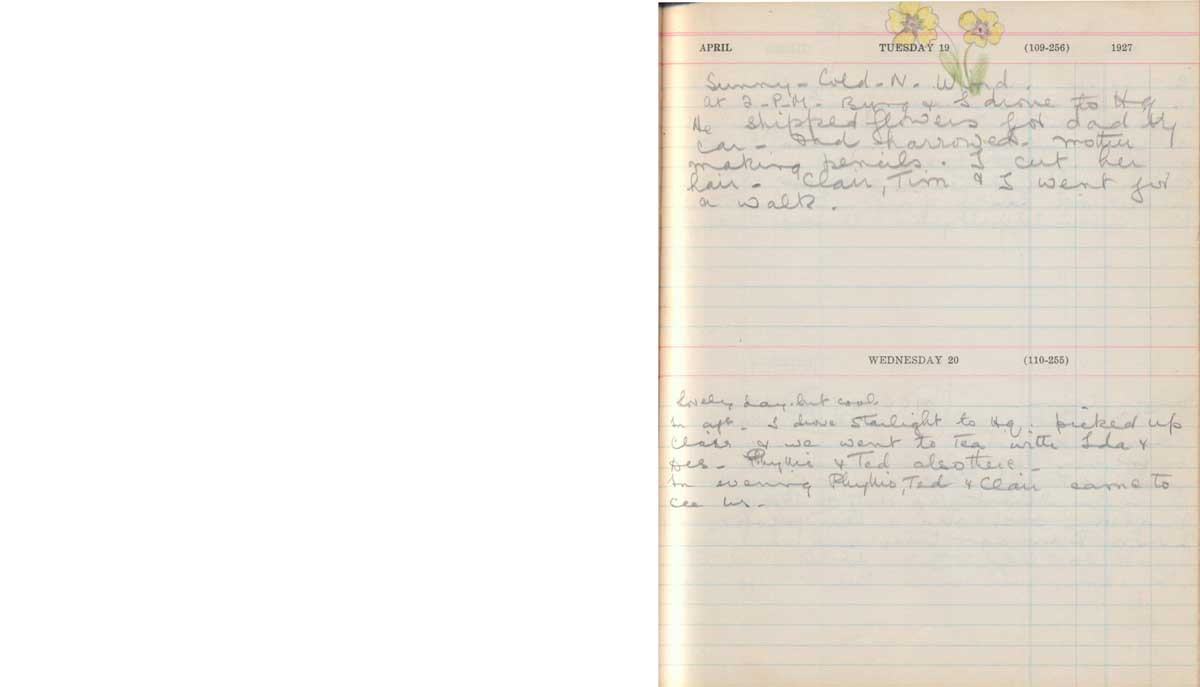 APRIL TUESDAY 19 (109-256) 1927
Sunny - Cold - N. Wind.
at 2 - P.M. Byng & I drove to H.q.
He shipped flowers for dad by
car - Dad harrowed. mother
making pencils. I cut her
hair - Clair, Tim & I went for
a walk.
WEDNESDAY 20 (110-255)
Lovely day. but cool.
In aft. I drove Starlight to H.q. picked up
Clair & we went to Tea with Ida &
Des - Phyllis & Ted also there -
In evening Phyllis, Ted & Clair came to
see us -